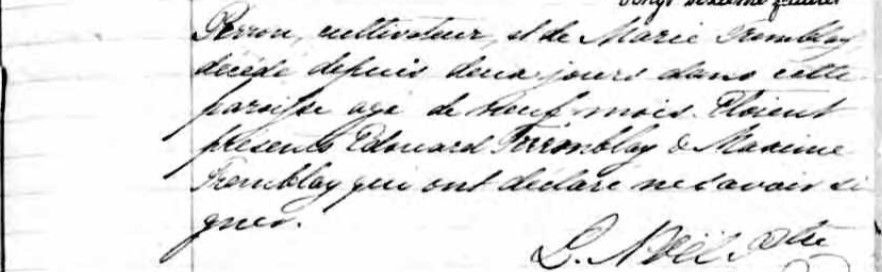 vingt sixième feuillet
Perron, cultivateur, et de Marie Tremblay
décédé depuis deux jours dans cette
paroisse agé de neuf mois. Etoient
présents Edouard Trremblay & Maxime
Tremblay qui ont déclaré ne savoir si
gner.
L. Noël Ptre